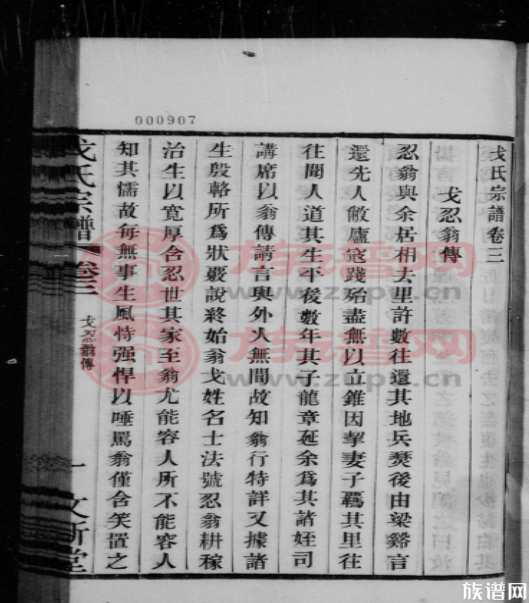 000907
戈氏宗譜卷三
戈忍翁傳
忍翁與余居相去里許數往還其地兵燹後由梁谿言
還先人敝廬寇踐殆盡無以立錐因挈妻子羈其里往
往聞人道其生平後數年其子龍章延余爲其諸姪司
講席以翁傳請言與外人無間故知翁行特詳又據諸
生殷輅所爲狀叢說終始翁戈姓名士法號忍翁耕稼
治生以寬厚含忍世其家至翁尤能容人所不能容人
知其懦故每無事生風恃強悍以唾罵翁僅含笑置之
戈氏宗譜
卷三
戈忍翁傳
一
文新堂
龙腾谱网
www.ztpu.cn
族谱网